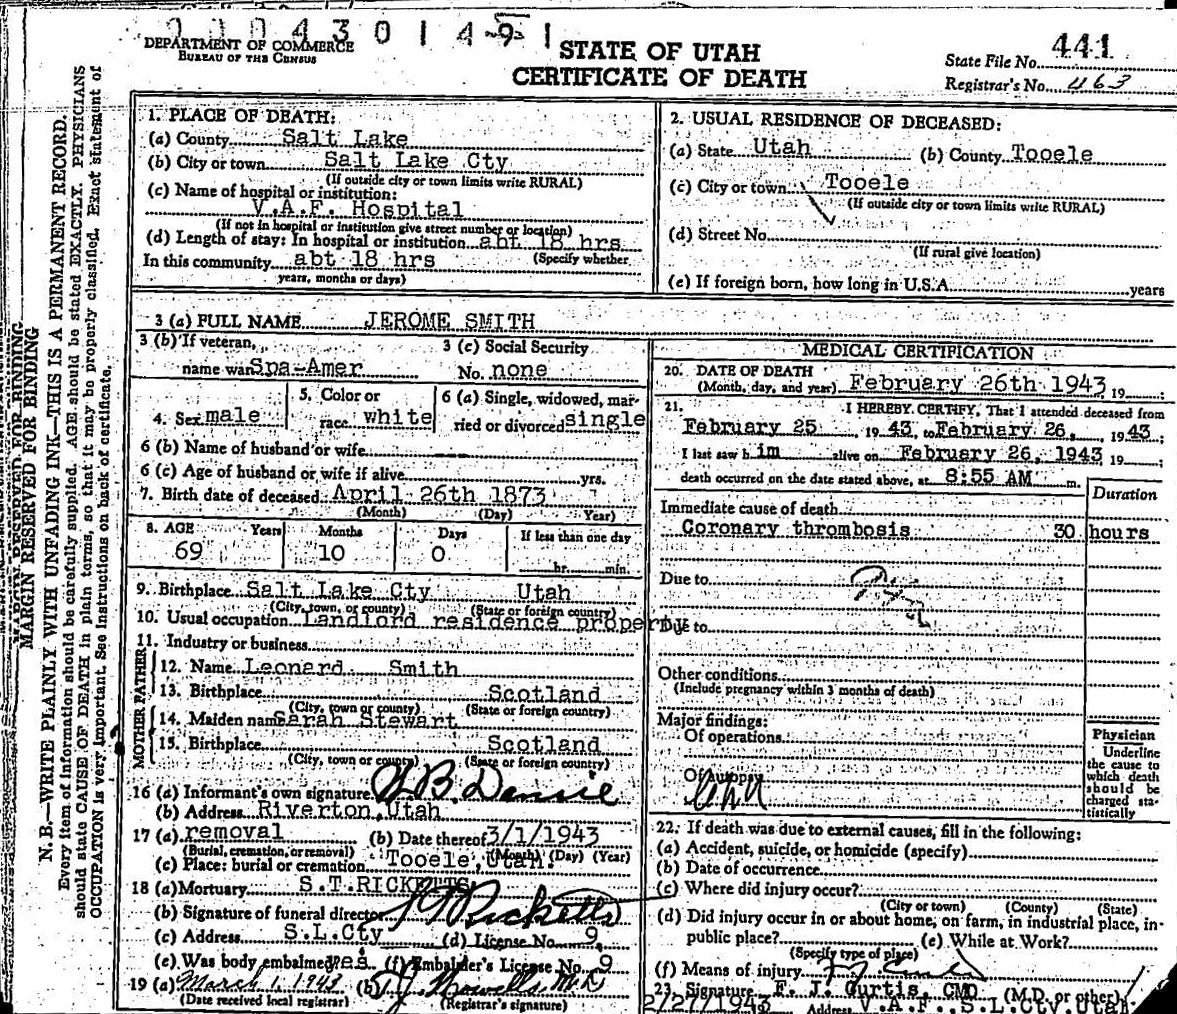 0 0 0 4 3 0 1 4 9 1
DEPARTMENT OF COMMERCE
BUREAU OF THE CENSUS
STATE OF UTAH
CERTIFICATE OF DEATH
State File No. 441
Registrar's No. 463
MARGIN RESERVED FOR BINDING
N. B.—WRITE PLAINLY WITH UNFADING INK—THIS IS A PERMANENT RECORD.
Every item of information should be carefully supplied. AGE should be stated EXACTLY. PHYSICIANS
should state CAUSE OF DEATH in plain terms, so that it may be properly classified. Exact statement of
OCCUPATION is very important. See instructions on back of certificate.
1. PLACE OF DEATH:
(a) County Salt Lake
(b) City or town Salt Lake Cty
(If outside city or town limits write RURAL)
(c) Name of hospital or institution:
V.A.F. Hospital
(If not in hospital or institution give street number or location)
(d) Length of stay: In hospital or institution abt 18 hrs
In this community abt 18 hrs (Specify whether
years, months or days)
2. USUAL RESIDENCE OF DECEASED:
(a) State Utah (b) County Tooele
(c) City or town Tooele
(If outside city or town limits write RURAL)
(d) Street No.
(If rural give location)
(e) If foreign born, how long in U.S.A. years
3 (a) FULL NAME JEROME SMITH
3 (b) If veteran, 3 (c) Social Security
name war Spa-Amer No. none
4. Sex male 5. Color or race white 6 (a) Single, widowed, married or divorced single
6 (b) Name of husband or wife
6 (c) Age of husband or wife if alive yrs.
7. Birth date of deceased April 26th 1873
(Month) (Day) (Year)
8. AGE Years Months Days If less than one day
69 10 0 hr. min.
9. Birthplace Salt Lake Cty Utah
(City, town, or county) (State or foreign country)
10. Usual occupation Landlord residence property
11. Industry or business
FATHER
12. Name Leonard Smith
13. Birthplace Scotland
(City, town or county) (State or foreign country)
MOTHER
14. Maiden name Sarah Stewart
15. Birthplace Scotland
(City, town or county) (State or foreign country)
16 (a) Informant's own signature
(b) Address Riverton, Utah
17 (a) removal (b) Date thereof 3/1/1943
(Burial, cremation, or removal) (Month) (Day) (Year)
(c) Place: burial or cremation Tooele, Utah.
18 (a) Mortuary S.T. RICKETTS
(b) Signature of funeral director Ricketts
(c) Address S.L.Cty (d) License No. 9
(e) Was body embalmed yes (f) Embalmer's License No. 9
19 (a) March 1, 1943 (b) Howells M.D.
(Date received local registrar) (Registrar's signature)
MEDICAL CERTIFICATION
20. DATE OF DEATH
(Month, day, and year) February 26th 1943, 19
21. I HEREBY CERTIFY, That I attended deceased from
February 25, 1943, to February 26, 1943;
I last saw him alive on February 26, 1943, 19 ;
death occurred on the date stated above, at 8:55 AM m.
Duration
Immediate cause of death
Coronary thrombosis 30 hours
Due to
Due to
Other conditions
(Include pregnancy within 3 months of death)
Major findings:
Of operations
Of autopsy
Physician
Underline
the cause to
which death
should be
charged sta-
tistically
22. If death was due to external causes, fill in the following:
(a) Accident, suicide, or homicide (specify)
(b) Date of occurrence
(c) Where did injury occur?
(City or town) (County) (State)
(d) Did injury occur in or about home, on farm, in industrial place, in-
public place? (e) While at Work?
(Specify type of place)
(f) Means of injury
23. Signature F. J. Curtis, CMO (M.D. or other)
2/27/1943 Address V.A.F. S.L.Cty, Utah